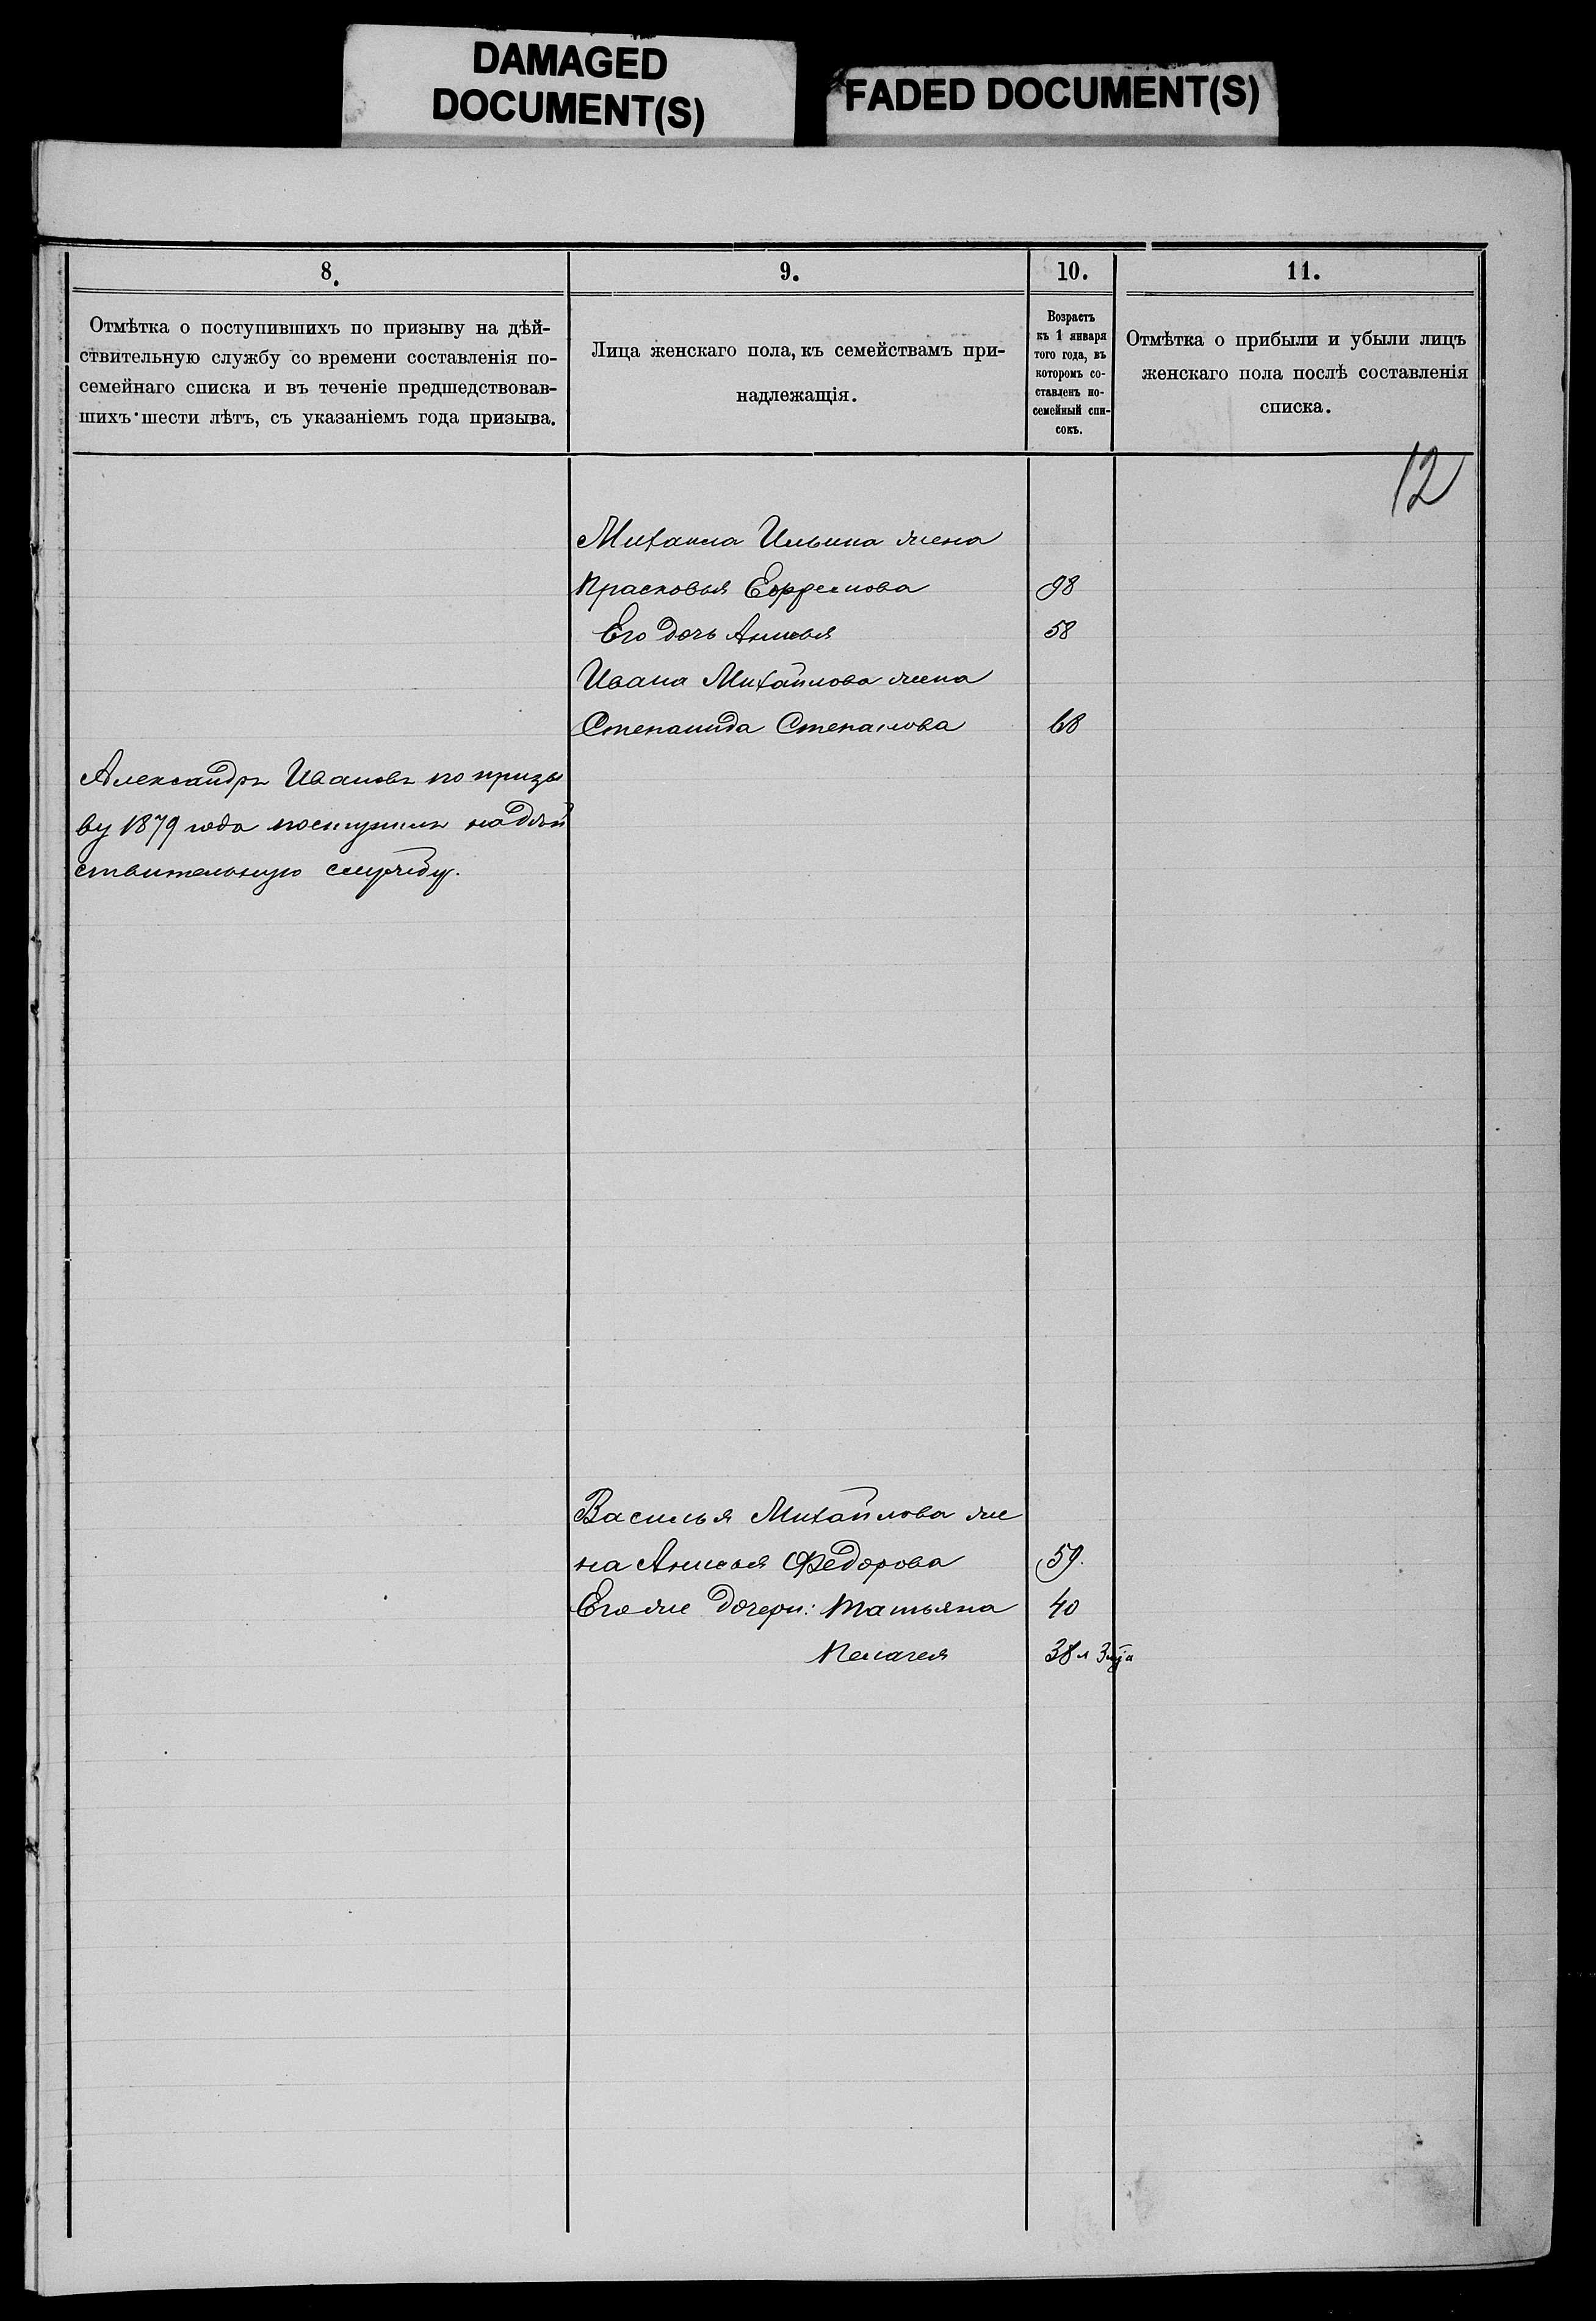 DAMAGED
DOCUMENT(S)
FADED DOCUMENT(S)
8.
9.
10.
11.
Отмѣтка о поступившихъ по призыву на дѣй-
ствительную службу со времени составленія по-
семейнаго списка и въ теченіе предшедствовав-
шихъ шести лѣтъ, съ указаніемъ года призыва.
Лица женскаго пола, къ семействамъ при-
надлежащія.
Возрастъ
къ 1 января
того года, въ
которомъ со-
ставленъ по-
семейный спи-
сокъ.
Отмѣтка о прибыли и убыли лицъ
женскаго пола послѣ составленія
списка.
12
Михаила Ильина жена
Прасковья Ефремова 98
Его дочь Анисья 58
Ивана Михайлова жена
Степанида Степанова 68
Александръ Ивановъ по призы
ву 1879 года поступилъ на дѣй
ствительную службу.
Василья Михайлова же
на Анисья Федорова 59.
Его же дочери: Татьяна 40
Пелагея 38 л